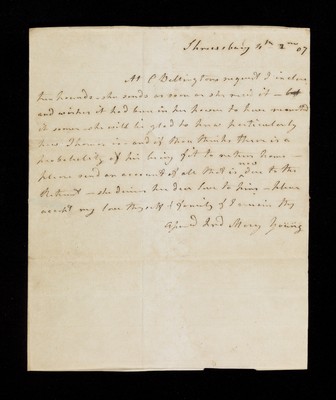 Shrewsbury 4th 2mo 07
At C Bellingtons request I inclose
her pounds - she sends as soon as she recd it -
and wishes it had been in her power to have remitted
it sooner - she will be glad to know particularly
how Thomas is - and if thou thinks there is a
probability of his being fit to return home -
please send an account of all that is due to the
Retreat - she desires her dear love to him - please
accept my love thyself & family & I remain thy
Mary Young